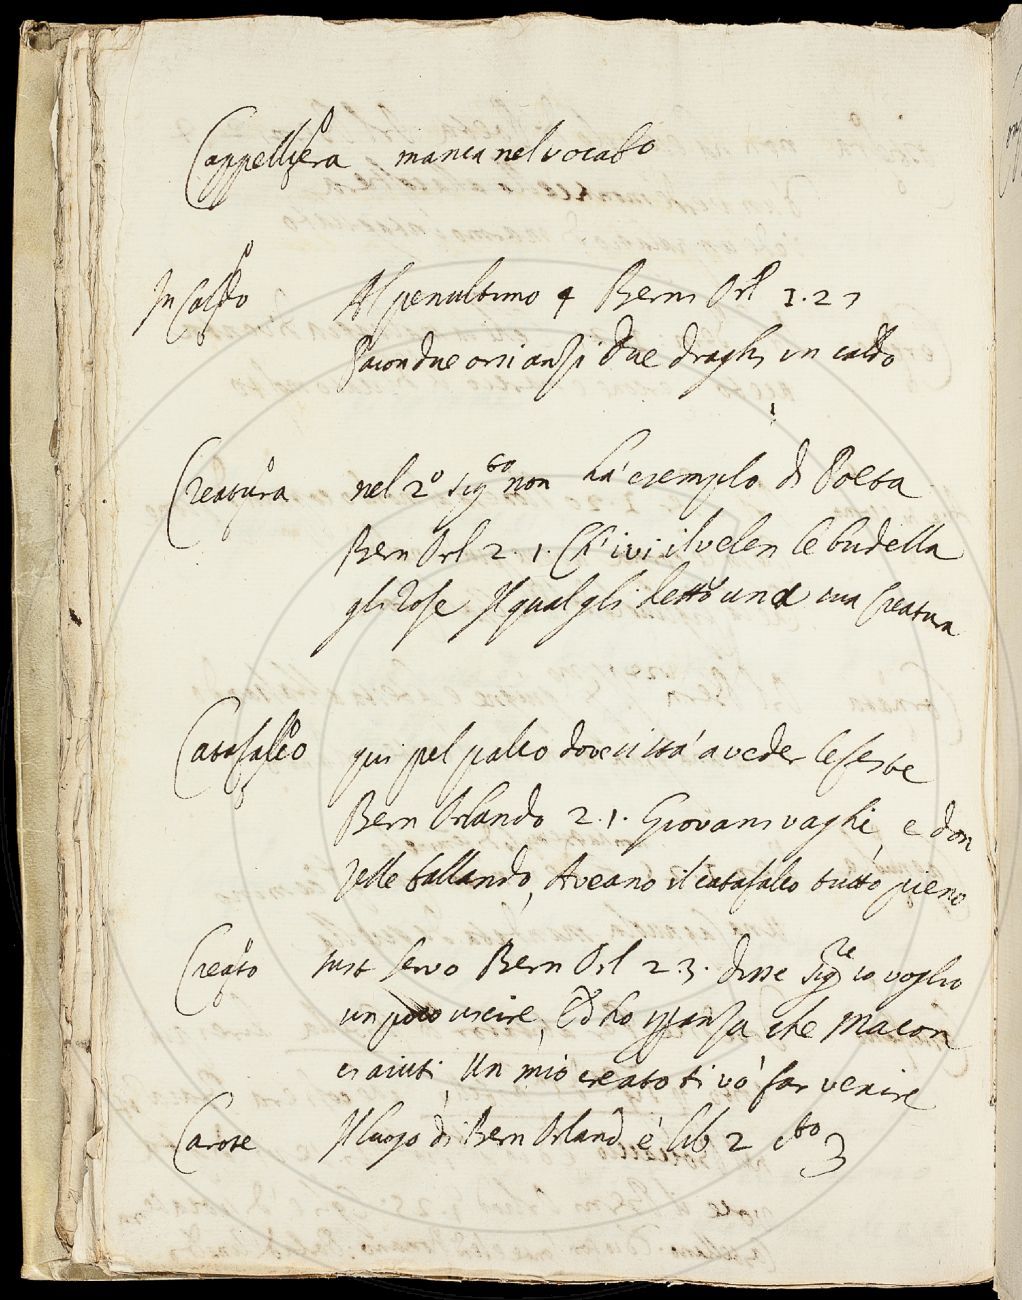 Cappelliera manca nel vocabo
In Caldo Al penultimo 4 Bern Orl 1.27
Pacon due orsi anzi due draghi in caldo
Creatura nel 2º sigto non há esempio di Poeta
Bern Orl 2.1. Ch'ivi il velen le budella
gli rose Il qual gli dette una sua Creatura
Catafalco qui pel palco dove si stá a veder le feste
Bern Orlando 2.1. Giovani vaghi, e don
zelle ballando, Aveano il catafalco tutto pieno
Creato sust servo Bern Orl 2.3. disse sigre io voglio
un poco uscire, Ed ho speranza che Macon
ci aiuti Un mio creato ti vo' far venire
Carote Il luogo di Bern Orland é lib 2 cto 3